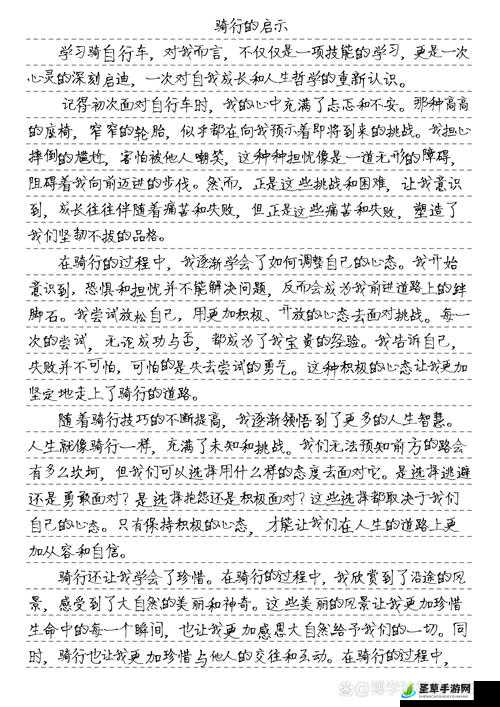 骑行的启示
学习骑自行车，对我而言，不仅仅是一项技能的学习，更是一次
心灵的深刻启迪，一次对自我成长和人生哲学的重新认识。
记得初次面对自行车时，我的心中充满了忐忑和不安。那种高高
的座椅，窄窄的轮胎，似乎都在向我预示着即将到来的挑战。我担心
摔倒的尴尬，害怕被他人嘲笑，这种种担忧像是一道无形的障碍，
阻碍着我向前迈进的步伐。然而，正是这些挑战和困难，让我意识
到，成长往往伴随着痛苦和失败，但正是这些痛苦和失败，塑造了
我们坚韧不拔的品格。
在骑行的过程中，我逐渐学会了如何调整自己的心态。我开始
意识到，恐惧和担忧并不能解决问题，反而会成为我前进道路上的绊
脚石。我尝试放松自己，用更加积极、开放的心态去面对挑战。每一
次的尝试，无论成功与否，都成为了我宝贵的经验。我告诉自己，
失败并不可怕，可怕的是失去尝试的勇气。这种积极的心态让我更加
坚定地走上了骑行的道路。
随着骑行技巧的不断提高，我逐渐领悟到了更多的人生智慧。
人生就像骑行一样，充满了未知和挑战。我们无法预知前方的路会
有多么坎坷，但我们可以选择用什么样的态度去面对它。是选择逃避
还是勇敢面对？是选择抱怨还是积极面对？这些选择都取决于我们
自己的心态。只有保持积极的心态，才能让我们在人生的道路上更
加从容和自信。
骑行还让我学会了珍惜。在骑行的过程中，我欣赏到了沿途的风
景，感受到了大自然的美丽和神奇。这些美丽的风景让我更加珍惜
生命中的每一个瞬间，也让我更加感恩大自然给予我们的一切。同
时，骑行也让我更加珍惜与他人的交往和互动。在骑行的过程中，
圣草手游网